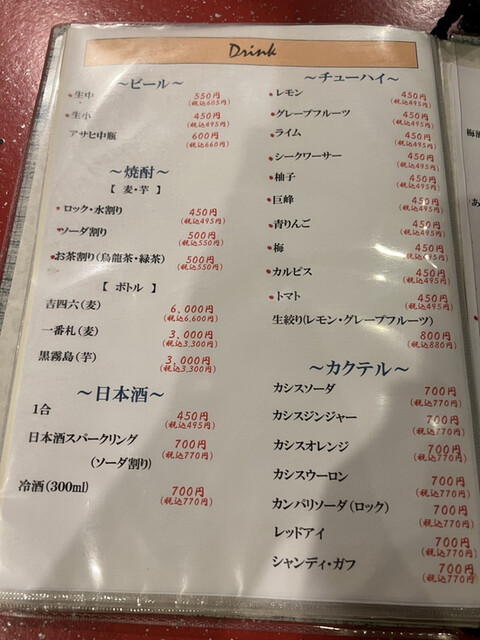 Drink
～ビール～
・生中 550円
(税込605円)
・生小 450円
(税込495円)
アサヒ中瓶 600円
(税込660円)
～焼酎～
【 麦・芋 】
・ロック・水割り 450円
(税込495円)
・ソーダ割り 500円
(税込550円)
・お茶割り(烏龍茶・緑茶) 500円
(税込550円)
【 ボトル 】
吉四六(麦) 6,000円
(税込6,600円)
一番札(麦) 3,000円
(税込3,300円)
黒霧島(芋) 3,000円
(税込3,300円)
～日本酒～
1合 450円
(税込495円)
日本酒スパークリング 700円
(ソーダ割り) (税込770円)
冷酒(300ml) 700円
(税込770円)
～チューハイ～
・レモン 450円
(税込495円)
・グレープフルーツ 450円
(税込495円)
・ライム 450円
(税込495円)
・シークワーサー 450円
(税込495円)
・柚子 450円
(税込495円)
・巨峰 450円
(税込495円)
・青りんご 450円
(税込495円)
・梅 450円
(税込495円)
・カルピス 450円
(税込495円)
・トマト 450円
(税込495円)
生絞り(レモン・グレープフルーツ)
800円
(税込880円)
～カクテル～
カシスソーダ 700円
(税込770円)
カシスジンジャー 700円
(税込770円)
カシスオレンジ 700円
(税込770円)
カシスウーロン 700円
(税込770円)
カンパリソーダ(ロック) 700円
(税込770円)
レッドアイ 700円
(税込770円)
シャンディ・ガフ 700円
(税込770円)